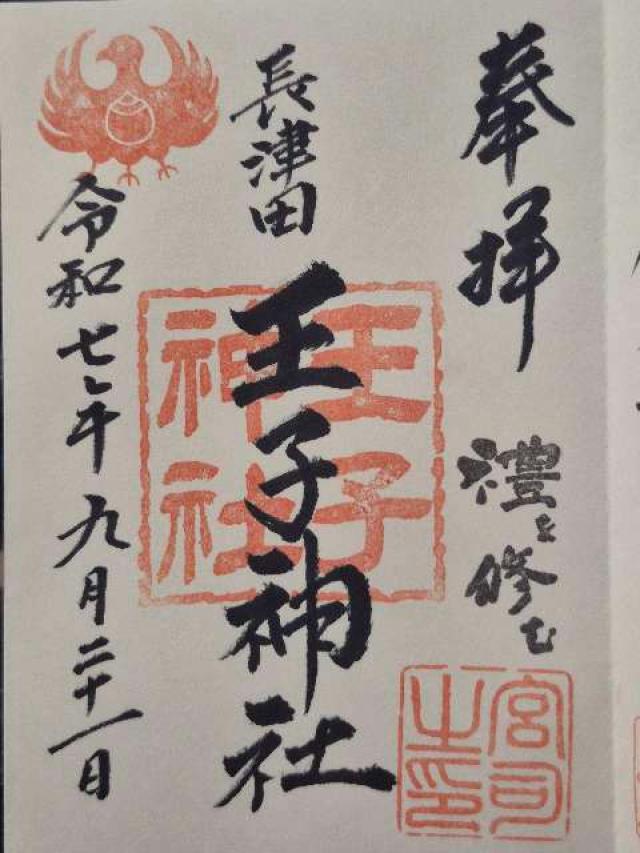 奉拝
禮を修む
宮司之印
長津田
王子神社
王子神社
令和七年九月二十一日